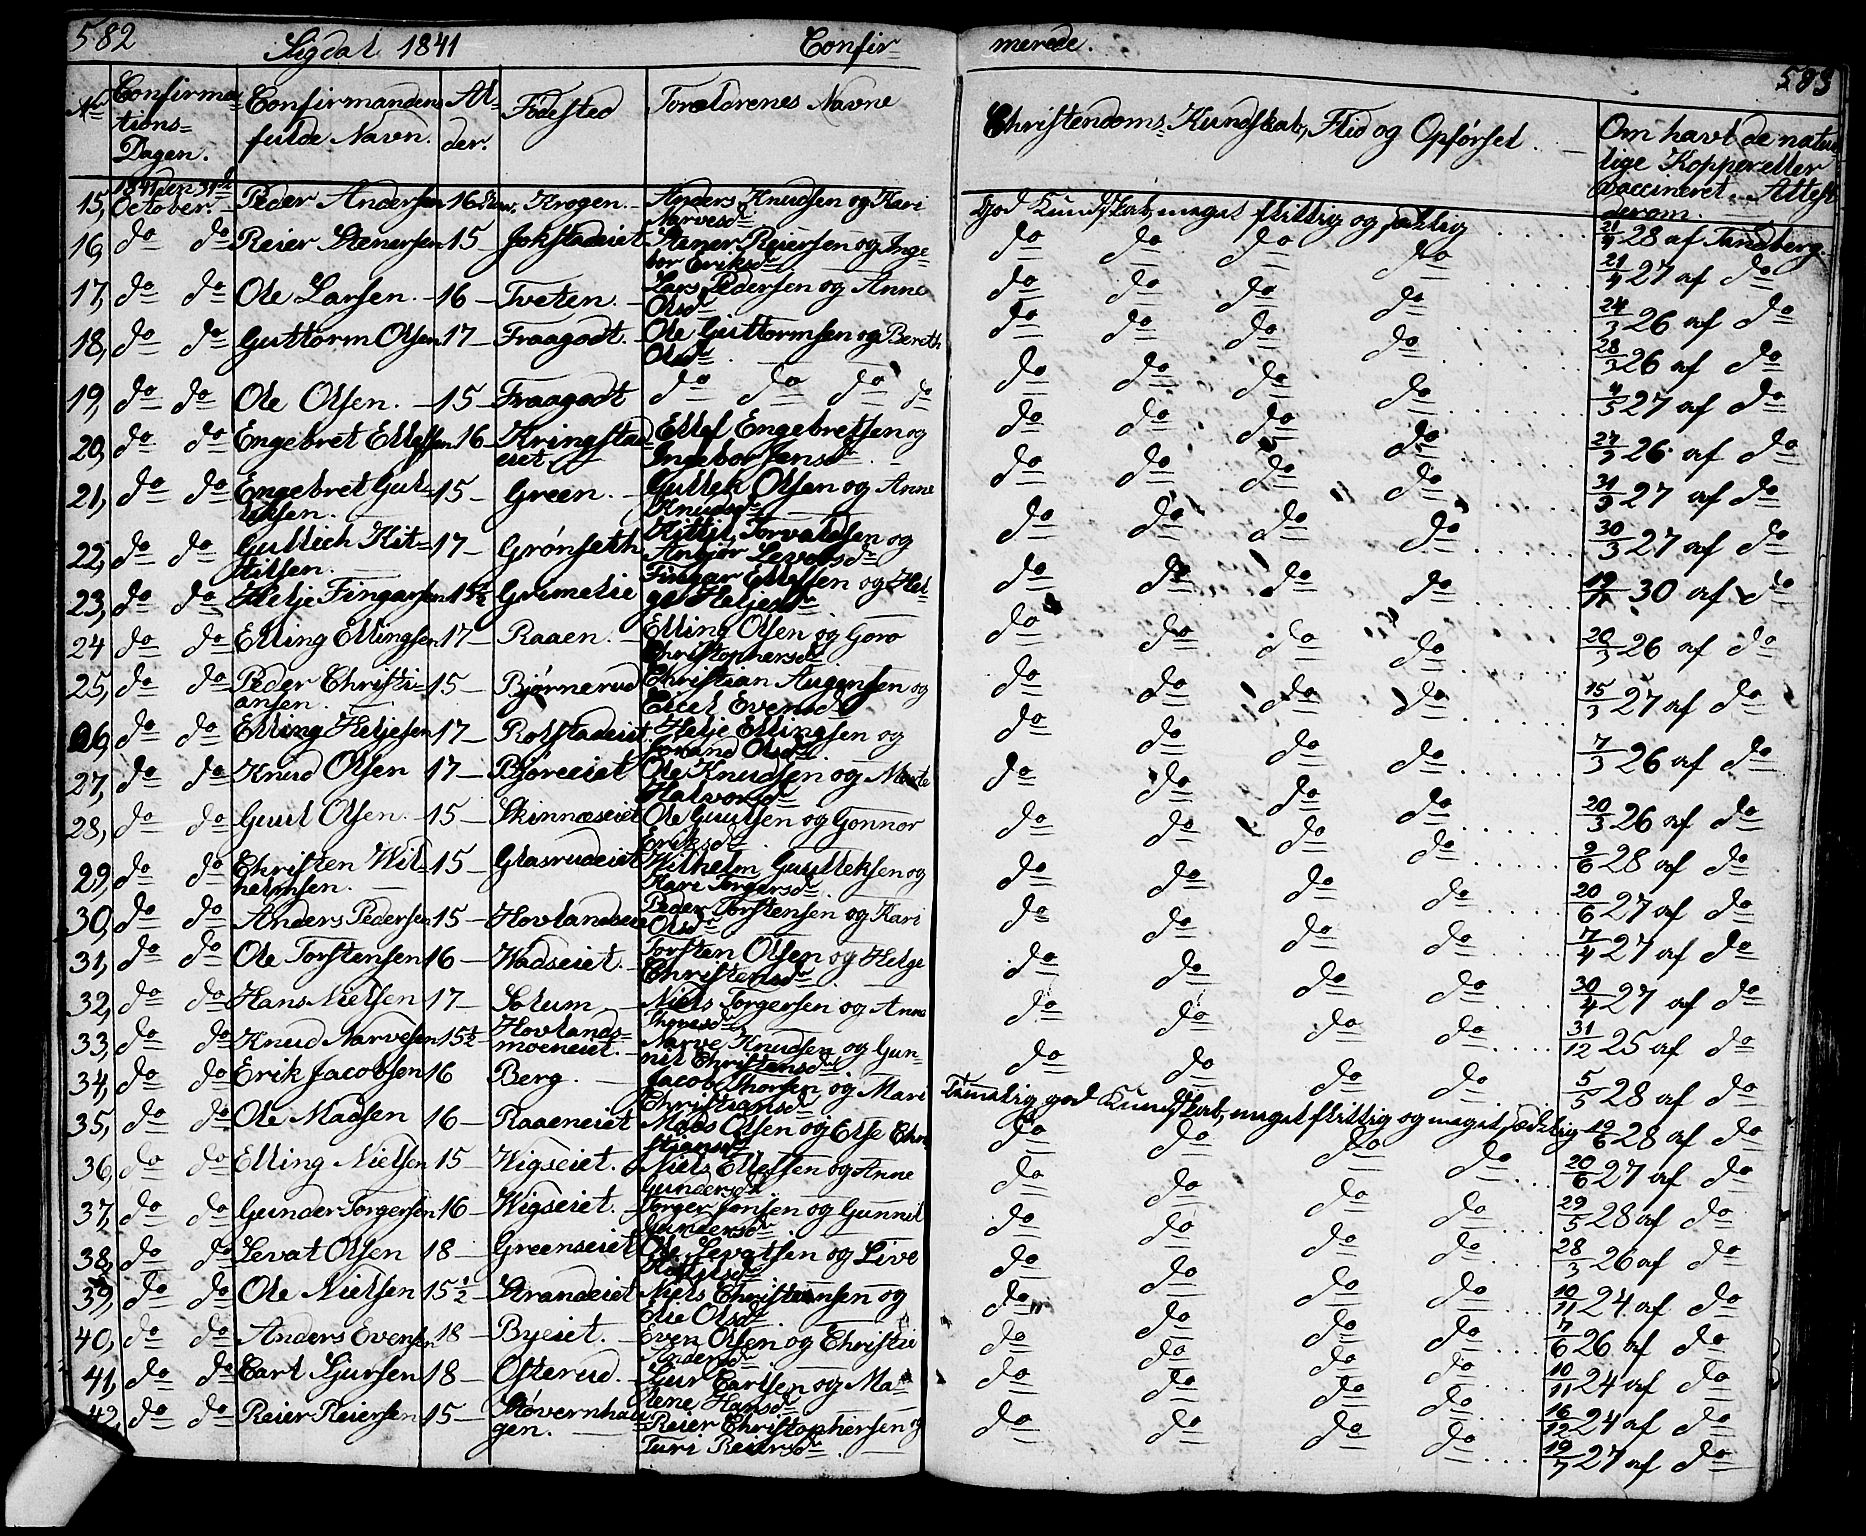 582
Sigdal 1841
Confir-
merede.
583
No
Confirma-
tions-
Dagen.
Confirmandens
fulde Navn.
Al-
der.
Fødested
Forældrenes Navne
Christendoms-Kundskab, Flid og Opførsel.
Om havt de natur-
lige Kopper eller
vaccineret - Attest
derom.
1841 den 31te
October.
15, Peder Andersen 16 Krogen. Anders Knudsen og Kari
Narvesdr
God Kundskab, meget flittig og sædelig 21/4 28 af Tandberg.
16, do do Reier Stenersen 15 - Jokstadeiet Stener Reiersen og Inge-
bor Eriksdr
do do do do 21/4 27 af do
17, do do Ole Larsen. - 16 - Tveten. - Lars Pedersen og Anne
Olsdr
do do do do 24/3 26 af do
18, do do Guttorm Olsen 17 - Fraagodt. - Ole Guttormsen og Bereth
Olsdr
do do do do 28/3 26 af do
19, do do Ole Olsen. - 15 - Fraagodt do do do do
do do do do 27 af do
20, do do Engebret Ellefsen 16 - Kringstad- Ellef Engebretsen og
eiet Ingebor Jensdr
do do do do 26 af do
21, do do Engebret Gul- 15 - Green. - Gullek Olsen og Anne
leksen. Knudsdr
do do do do 27 af do
22, do do Gullich Kit- 17 - Grønseth Kittil Torvaldsen og
tilsen. Anbjør Levorsdr
do do do do 30/3 27 af do
23, do do Helje Fingarsen 15 1/2 Grimelie Fingar Ellefsen og Hel-
ge Heljesdr
do do do do 30 af do
24 do do Elling Ellingsen 17 - Raaen. - Elling Olsen og Goro
Christophersdr
do do do do 20/3 26 af do
25, do do Peder Christi- 15 - Bjørnerud Christian Augensen og
ansen. Sicel Evensdr
do do do do 15/3 27 af do
26, do do Elling Heljesen 17 - Rolfstadeiet. Helje Ellingsen og
Jorand Olsdr
do do do do 7/3 26 af do
27, do do Knud Olsen 17 - Bjøreeiet Ole Knudsen og Marte
Halvorsdr
do do do do 20/3 26 af do
28, do do Guul Olsen. - 15 - Skinnæseiet Ole Guulsen og Gonnor
Eriksdr
do do do do 2/6 28 af do
29, do do Christen Wil- 15 - Glasrudeiet Wilhelm Guulleksen og
helmsen. Kari Torgersdr
do do do do 20/6 27 af do
30, do do Anders Pedersen 15 - Hovlandseie Peder Torstensen og Kari
Olsdr
do do do do 7/4 27 af do
31, do do Ole Torstensen 16 - Wadseiet. - Torsten Olsen og Helge
Christensdr
do do do do 30/4 27 af do
32, do do Hans Nielsen 17 - Solum, - Niels Torgersen og Anne
Thoresdr
do do do do 31/12 25 af do
33, do do Knud Narvesen 15 1/2 Hovlands- Narve Knudsen og Gun-
moeneiet. nil Christensdr
do do do do 5/5 28 af do
34, do do Erik Jacobsen 16 Berg. - Jacob Thorsen og Mari
Christiansdr
Temmelig god Kundskab, meget flittig og meget sædelig 19/6 28 af do
35, do do Ole Madsen 16 - Raaeneiet Mads Olsen og Else Chri-
stiansdr
do do do do 20/6 27 af do
36, do do Elling Nielsen 15 - Wigseiet. - Niels Ellefsen og Anne
Gundersdr
do do do do 29/5 28 af do
37, do do Gunder Torgersen 16 - Wigseiet. - Torger Jonsen og Gunnil
Gundersdr
do do do do 28/3 26 af do
38, do do Levat Olsen 18 - Greenseiet Ole Levatsen og Live
Kittilsdr
do do do do 10/11 24 af do
39, do do Ole Nielsen 15 1/2 - Strandeiet Niels Christensen og
Olsdr
do do do do 7/6 26 af do
40, do do Anders Evensen 18 - Byeiet. - Even Olsen og Christie
Andersdr
do do do do 10/11 24 af do
41, do do Carl Gjursen 18 - Osterud. - Gjur Carlsen og Ma-
lene Hansdr
do do do do 16/12 24 af do
42, do do Reier Reiersen 15 - Støvernhau- Reier Christophersen og
gen. Turi Reiersdr
do do do do 19/7 27 af do